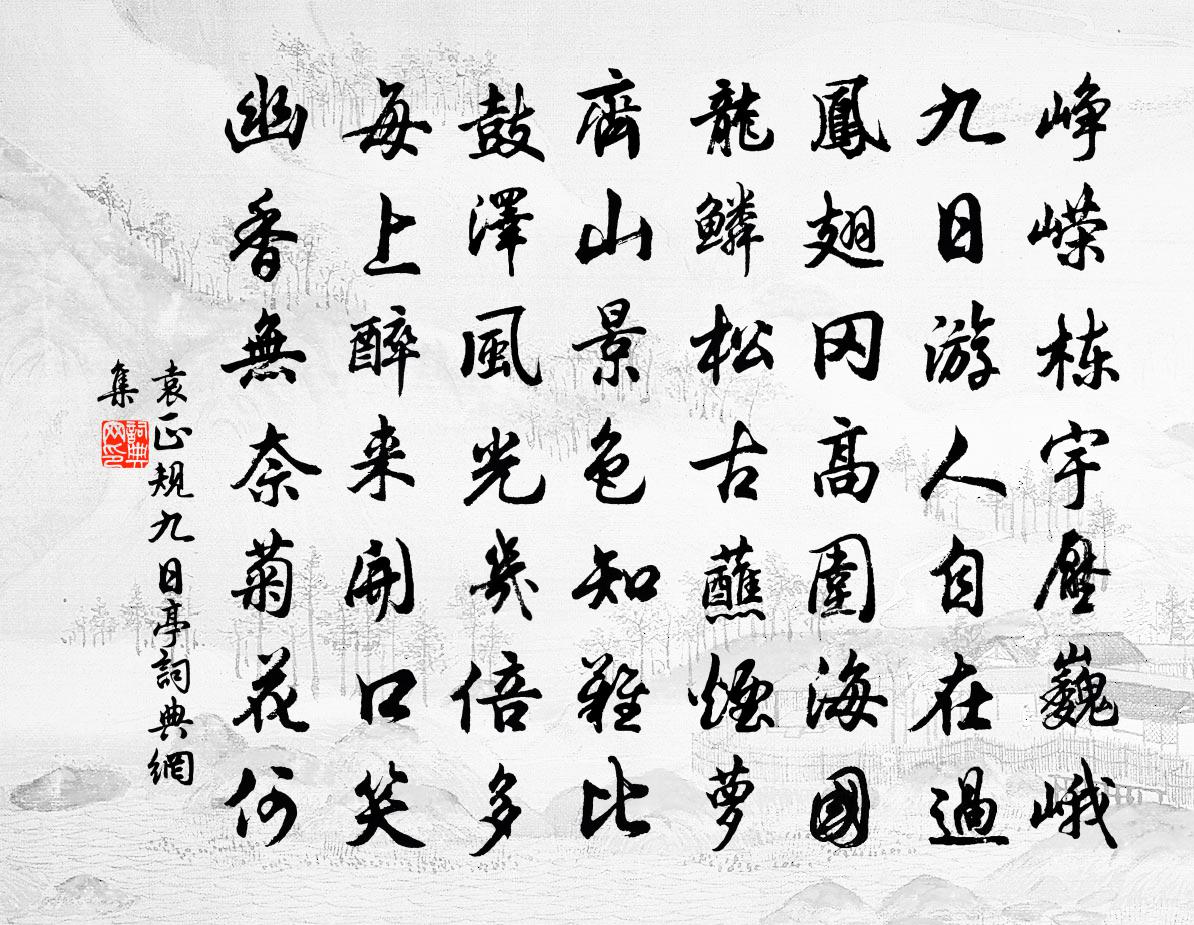 峥嵘栋宇壓巍峨
九日游人自在過
鳳翅冈高圍海國
龍鱗松古蘸煙萝
齊山景色知難比
鼓澤風光幾倍多
每上醉来開口笑
幽香無奈菊花何
袁正規九日亭詞典網
集
詞典
网印